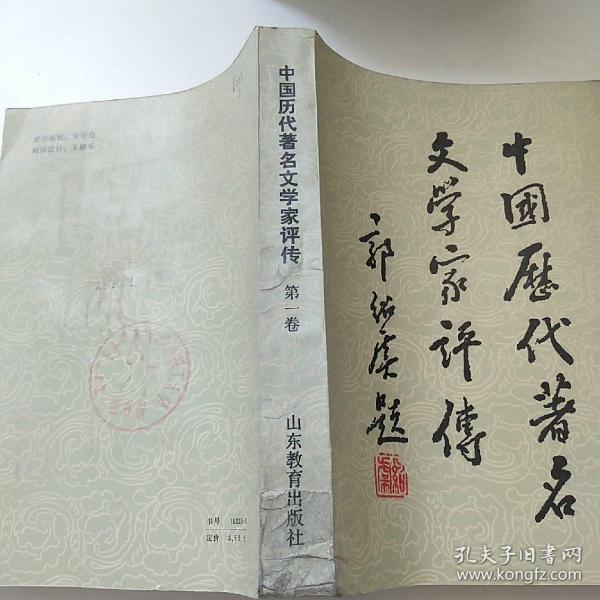 中國歷代著名
文學家評傳
郭紹虞題
中国历代著名文学家评传
第一卷
山东教育出版社
责任编辑:
封面设计:
书号
定价
孔夫子旧书网
www.kongfz.com